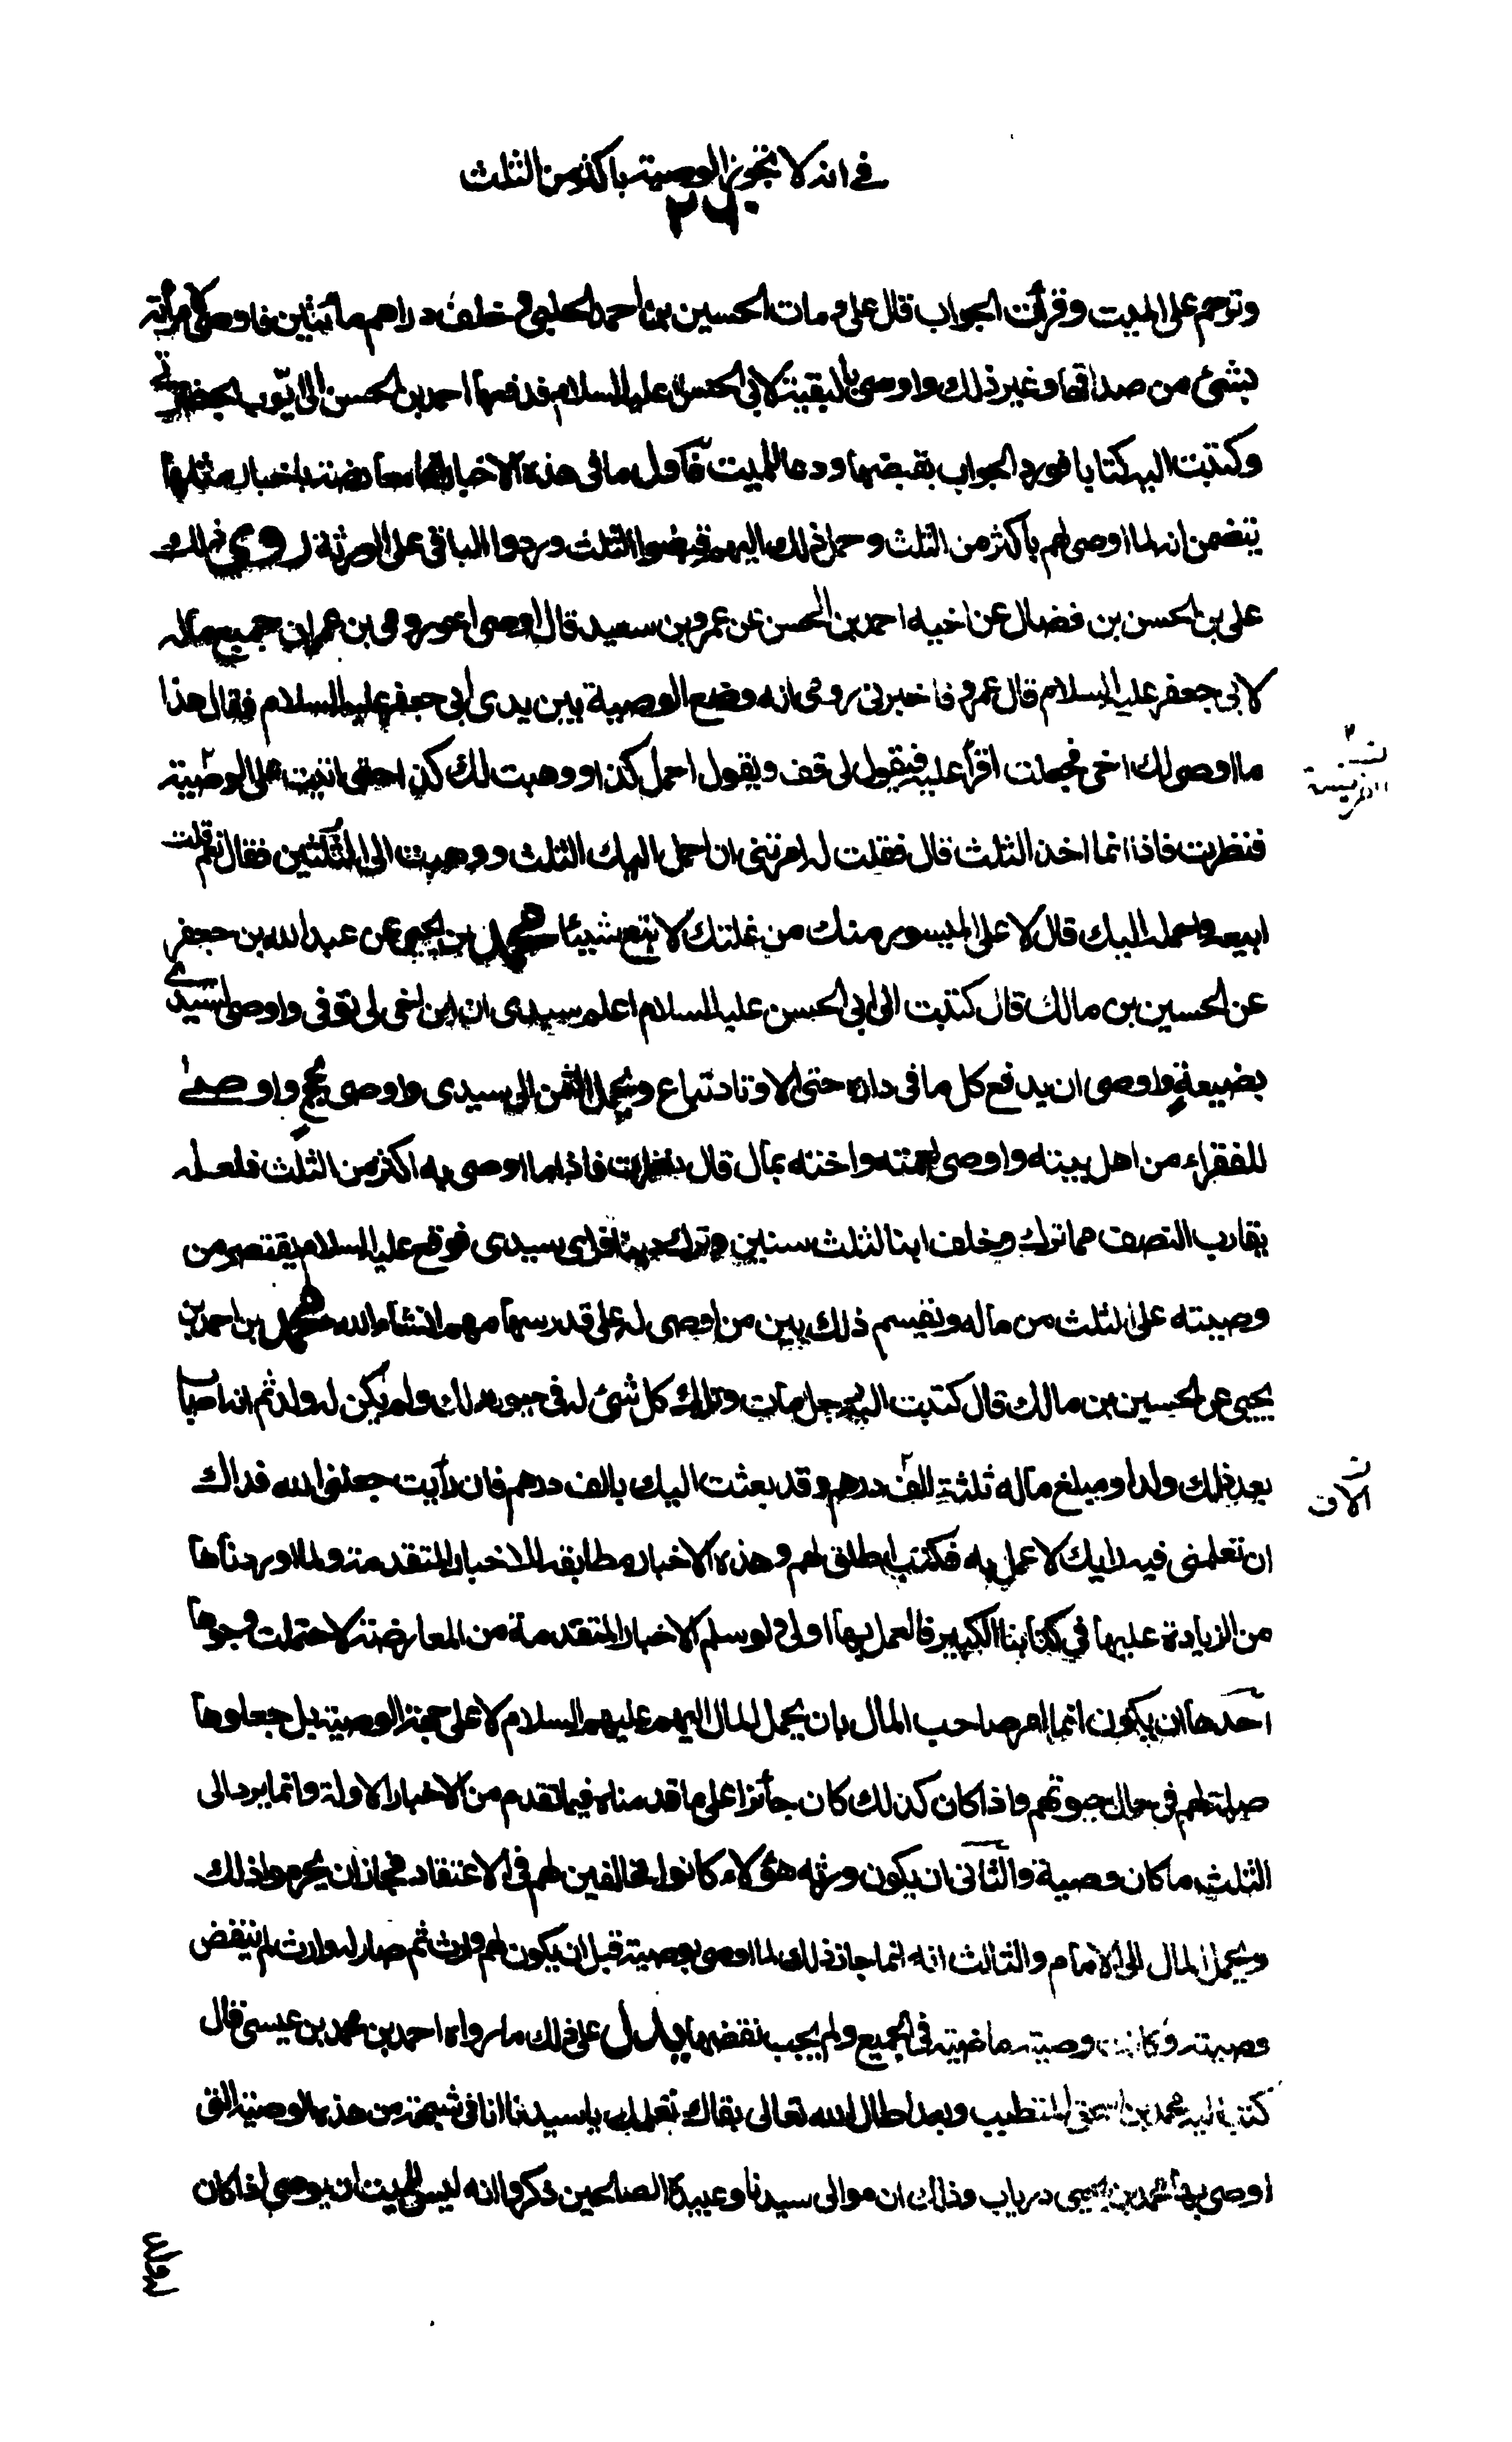 في انه لا تجوز الوصية باكثر من الثلث
وترحم على الميت وقرأت الجواب قال علي ومات الحسين بن احمد الحلبي وخلف دراهم مائتين فاوصى لامرأته
بشئ من صداقها وغير ذلك واوصى بالبقية لابي الحسن عليه السلام فدفعها احمد بن الحسن الى ايّوب بحضرتي
وكتبت اليه كتابا فورد الجواب بقبضها ودعا للميت فآول ما في هذه الاخبار انها معارضة باخبار مثلها
يتضمن انه لما اوصى لهم باكثر من الثلث وحمل ذلك اليهم قبضوا الثلث وردوا الباقي على الورثة روى ذلك
علي بن الحسن بن فضال عن اخيه احمد بن الحسن عن عمرو بن سعيد قال اوصى اخو رومي بن عمران جميع ماله
لابي جعفر عليه السلام قال عمرو فاخبرني رومي انه وضع الوصية بين يدي ابي جعفر عليه السلام فقال هذا
ما اوصى لك اخي فجعلت اقرأ عليه فيقول لي قف ويقول احمل كذا ووهبت لك كذا حتى اتيت على الوصية
فنظرت فاذا انما اخذ الثلث قال فقلت له امرتني ان احمل اليك الثلث ووهبت الي الثلثين فقال نعم قلت
ابيعه واحمله اليك قال لا على الميسور منك من غلتك لا تبع شيئا محمد بن يحيى عن عبد الله بن جعفر
عن الحسين بن مالك قال كتبت الى ابي الحسن عليه السلام اعلم سيدي ان ابن اخي لي توفي واوصى لسيدي
بضيعة واوصى ان يدفع كل ما في داره حتى الاوتاد تباع ويحمل الثمن الى سيدي واوصى بحج واوصى
للفقراء من اهل بيته واوصى لعمته واخته بمال قال فنظرت فاذا ما اوصى به اكثر من الثلث فلعله
يقارب النصف مما ترك وخلف ابنا لثلث سنين وترك دينا فرأى سيدي فوقع عليه السلام يقتصر من
وصيته على الثلث من ماله ويقسم ذلك بين من اوصى له على قدر سهامهم انشاء الله محمد بن احمد بن
يحيى عن الحسين بن مالك قال كتبت اليه رجل مات وترك كل شئ له في حيوته لك ولم يكن له ولد ثم انه اصاب
بعد ذلك ولدا ومبلغ ماله ثلثة الف درهم وقد بعثت اليك بالف درهم فان رأيت جعلني الله فداك
ان تعلمني فيه رايك لاعمل به فكتب اطلق لهم وهذه الاخبار مطابقة للاخبار المتقدمة ولما اوردناها
من الزيادة عليها في كتابنا الكبير فالعمل بها اولى ولو سلم الاخبار المتقدمة من المعارضة لاحتملت وجوها
احدها ان يكون انما امر صاحب المال بان يحمل المال اليهم عليهم السلام لا على جهة الوصية بل جعلوها
صلة لهم في حال حيوتهم واذا كان كذلك كان جائزا على ما قدمناه فيما تقدم من الاخبار الاولة وانما يرد الى
الثلث ما كان وصية والثاني ان يكون ورثه هؤلاء كانوا مخالفين لهم في الاعتقاد فجاز ان يحرموا ذلك
ويحمل المال الى الامام والثالث انه انما جاز ذلك لما اوصى بوصيته قبل ان يكون لهم وارث ثم صار له وارث لم ينتقض
وصيته وكانت وصيته ماضية في الجميع ولم يجب نقضها يدل على ذلك ما رواه احمد بن محمد بن عيسى قال
كتب اليه محمد بن اسحق المتطبب وبعد اطال الله تعالى بقاك نعلمك يا سيدنا انا في شبهة من هذه الوصية التي
اوصى بها محمد بن يحيى درياب وذلك ان موالي سيدنا وعبيده الصالحين ذكروا انه ليس للميت ان يوصي اذا كان
ن
الاف